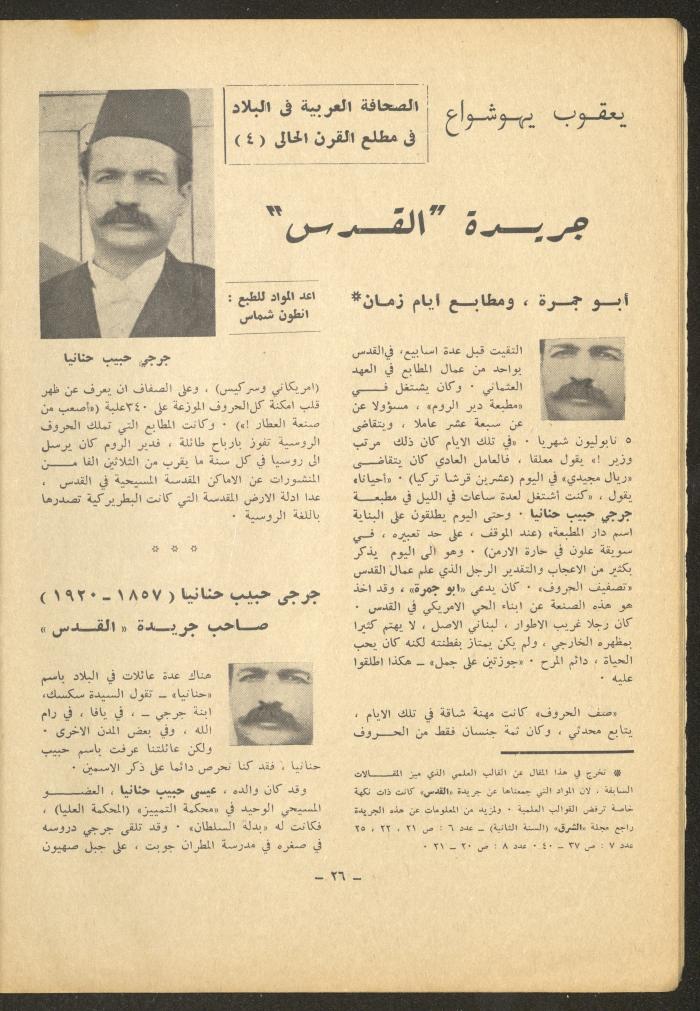 يعقوب يهوشواع
الصحافة العربية فى البلاد
فى مطلع القرن الحالى (٤)
جريدة "القدس"
أبو جمرة ، ومطابع ايام زمان*
التقيت قبل عدة اسابيع، في القدس
بواحد من عمال المطابع في العهد
العثماني ٠ وكان يشتغل في
«مطبعة دير الروم» ، مسؤولا عن
عن سبعة عشر عاملا ، ويتقاضى
٥ نابوليون شهريا ٠ «في تلك الايام كان ذلك مرتب
وزير !» يقول معلقا ، فالعامل العادي كان يتقاضى
«ريال مجيدي» في اليوم (عشرين قرشا تركيا) ٠ «أحيانا»
يقول ، «كنت أشتغل لعدة ساعات في الليل في مطبعة
جرجي حبيب حنانيا ٠ وحتى اليوم يطلقون على البناية
اسم دار المطبعة» (عند الموقف ، على حد تعبيره ، في
سويقة علون في حارة الارمن) ٠ وهو الى اليوم يذكر
بكثير من الاعجاب والتقدير الرجل الذي علم عمال القدس
«تصفيف الحروف» ٠ كان يدعى «ابو جمرة» ، وقد اخذ
هو هذه الصنعة عن ابناء الحي الامريكي في القدس ٠
كان رجلا غريب الاطوار ، لبناني الاصل ، لا يهتم كثيرا
بمظهره الخارجي ، ولم يكن يمتاز بفطنته لكنه كان يحب
الحياة ، دائم المرح ٠ «جوزتين على جمل» ــ هكذا اطلقوا
عليه ٠
«صف الحروف» كانت مهنة شاقة في تلك الايام ،
يتابع محدثي ، وكان ثمة جنسان فقط من الحروف
* نخرج في هذا المقال عن القالب العلمي الذي ميز المقالات
السابقة ، لان المواد التي جمعناها عن جريدة «القدس» كانت ذات نكهة
خاصة ترفض القوالب العلمية ٠ ولمزيد من المعلومات عن هذه الجريدة
راجع مجلة «الشرق» (السنة الثانية) ــ عدد ٦ : ص ٢١ ، ٢٢ ، ٢٥
عدد ٧ : ص ٣٧ ــ ٤٠ ٠ عدد ٨ : ص ٢٠ ــ ٢١ ٠
اعد المواد للطبع :
انطون شماس
جرجي حبيب حنانيا
(امريكاني وسركيس) ، وعلى الصفاف ان يعرف عن ظهر
قلب امكنة كل الحروف الموزعة على ٣٤٠ علبة («أصعب من
صنعة العطار !») ٠ وكانت المطابع التي تملك الحروف
الروسية تفوز بارباح طائلة ، فدير الروم كان يرسل
الى روسيا في كل سنة ما يقرب من الثلاثين الفا من
المنشورات عن الاماكن المقدسة المسيحية في القدس ،
عدا ادلة الارض المقدسة التي كانت البطريركية تصدرها
باللغة الروسية ٠
* * *
جرجى حبيب حنانيا (١٨٥٧ ــ ١٩٢٠)
صاحب جريدة «القدس»
هناك عدة عائلات في البلاد باسم
«حنانيا» ــ تقول السيدة سكسك،
ابنة جرجي ــ ، في يافا ، في رام
الله ، وفي بعض المدن الاخرى ٠
ولكن عائلتنا عرفت باسم حبيب
حنانيا ، فقد كنا نحرص دائما على ذكر الاسمين ٠
وقد كان والده ، عيسى حبيب حنانيا ، العضو
المسيحي الوحيد في «محكمة التمييز» (المحكمة العليا) ،
فكانت له «بدلة السلطان» ٠ وقد تلقى جرجي دروسه
في صغره في مدرسة المطران جوبت ، على جبل صهيون
ــ ٢٦ ــ